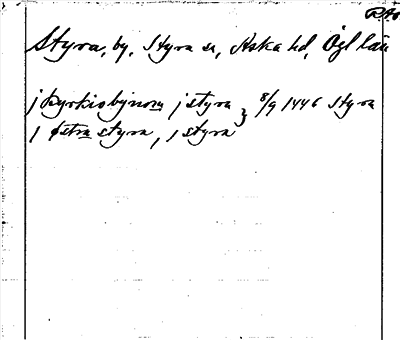 RAO
Styra, by, Styra sn, Aska hd, Ögl län
j kyrkiobynom j styra 8/9 1446 Styra
j østra styra, j styra